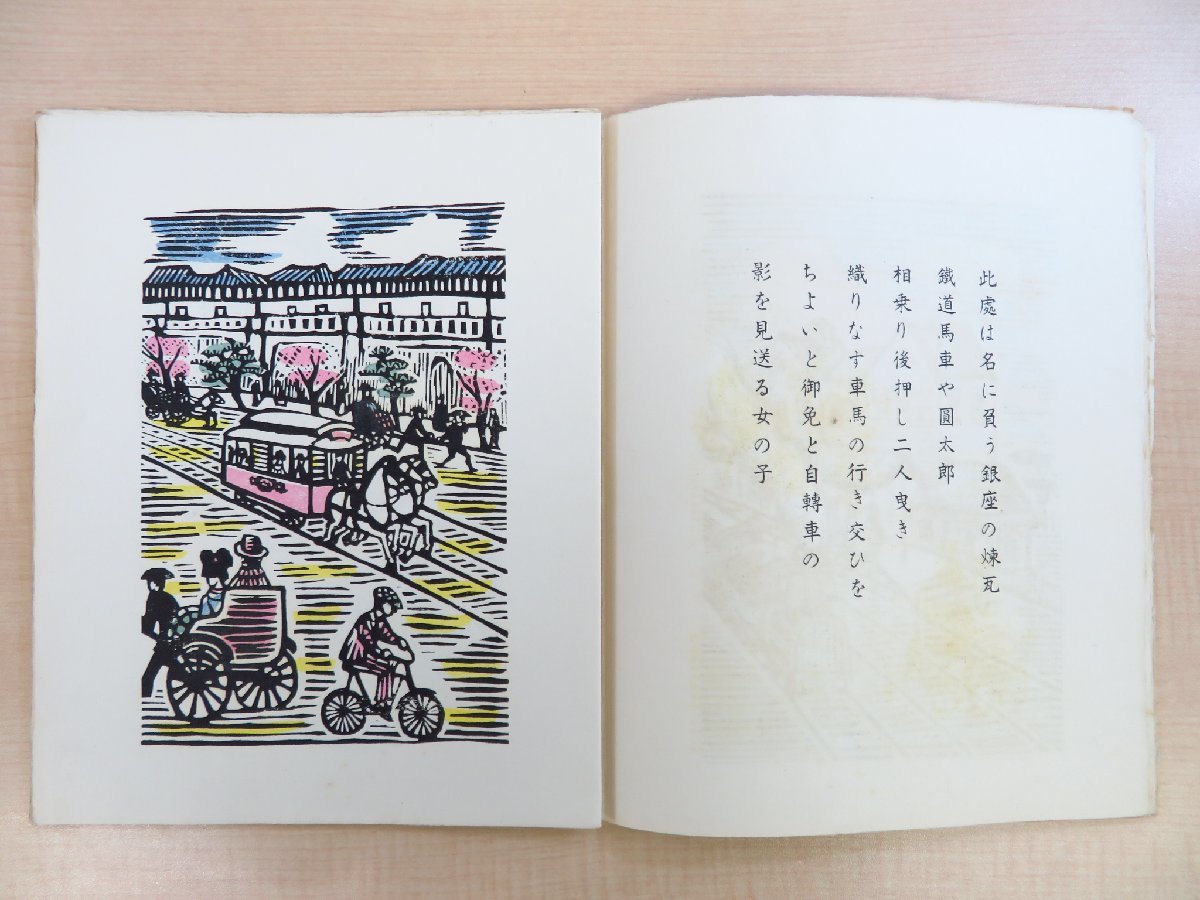 此處は名に負う銀座の煉瓦
鐵道馬車や圓太郎
相乗り後押し二人曳き
織りなす車馬の行き交ひを
ちよいと御免と自轉車の
影を見送る女の子